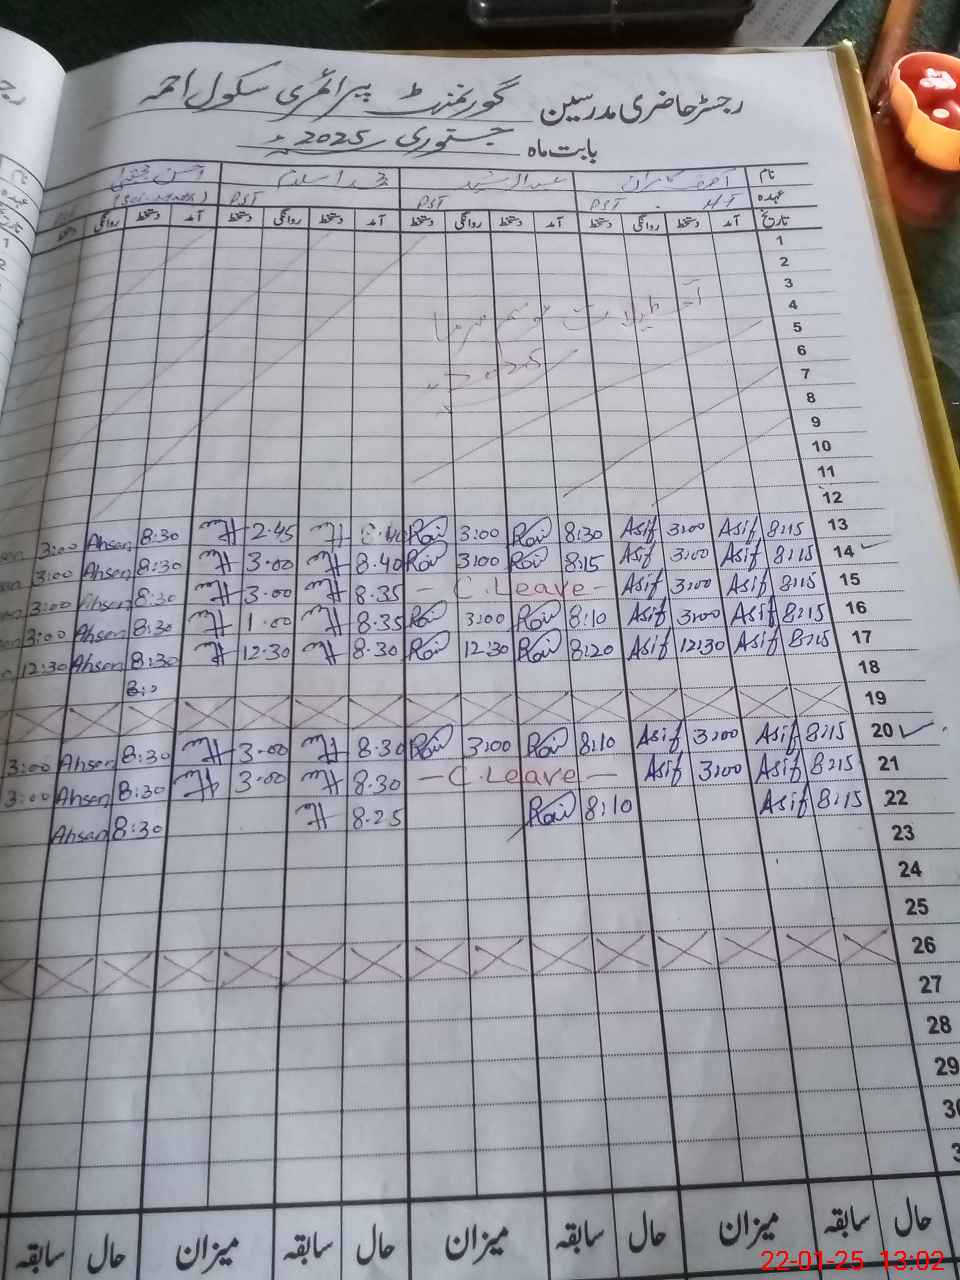 رجسٹر حاضری مدرسین گورنمنٹ پرائمری سکول احمد
بابت ماہ جنوری 2025ء
نام آصف کامران عبدالرشید محمد اسلم
عہدہ H.T PST PST PST (Sci-Math)
تاریخ آمد دستخط روانگی دستخط آمد دستخط روانگی دستخط آمد دستخط روانگی دستخط آمد دستخط روانگی دستخط
1
2
3
4
موسم سرما
5
6
2025
7
8
9
10
11
12
13 8:15 Asif 3:00 Asif 8:30 3:00 2.45 8:30 Ahsen 3:00
14 8:15 Asif 3:00 Asif 8:15 3:00 8.40 3.00 8:30 Ahsen 3:00
15 8:15 Asif 3:00 Asif - C.Leave - 8.35 3.00 8:30 Ahsen 3:00
16 8:15 Asif 3:00 Asif 8:10 3:00 8.35 1.00 8:30 Ahsen 3:00
17 8:15 Asif 12:30 Asif 8:20 12:30 8.30 12.30 8:30 Ahsen 12:30
18
19
20 8:15 Asif 3:00 Asif 8:10 3:00 8.30 3.00 8:30 Ahsen 3:00
21 8:15 Asif 3:00 Asif - C.Leave - 8.30 3.00 8:30 Ahsen 3:00
22 8:15 Asif 8:10 8.25 8:30 Ahsen
23
24
25
26
27
28
29
حال سابقہ میزان حال سابقہ میزان حال سابقہ میزان حال سابقہ
22-01-25 13:02